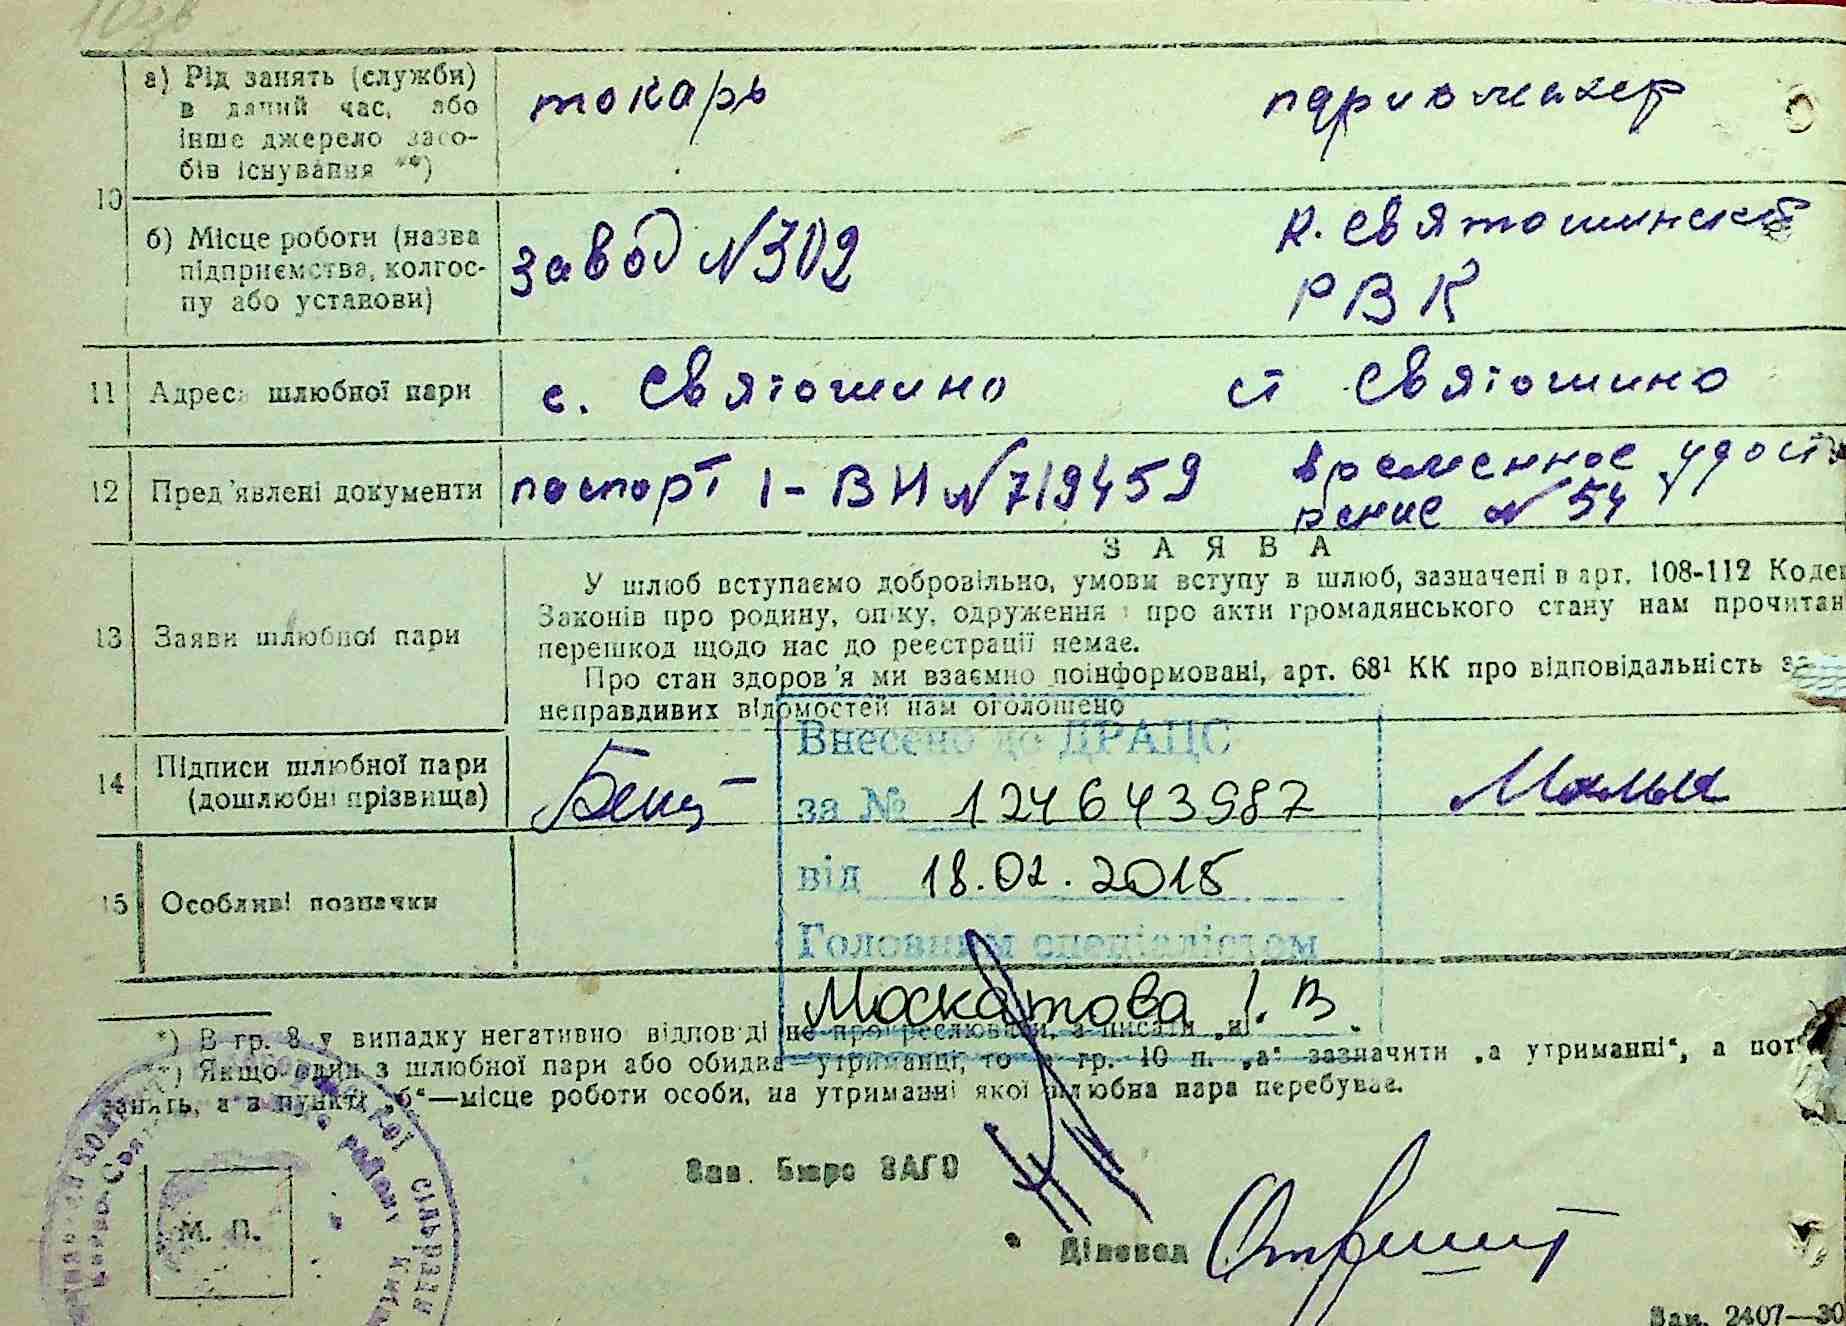 а) Рід занять (служби)
в даний час, або
інше джерело засо-
бів існування **)
токарь
10
б) Місце роботи (назва
підприємства, колгос-
пу або установи)
завод №302
К. Святошинск
РВК
11 Адреса шлюбної пари
с. Святошино ст Святошино
12 Пред'явлені документи
паспорт I-ВН №719459
временное удост
рение № 54
ЗАЯВА
13 Заяви шлюбної пари
У шлюб вступаємо добровільно, умови вступу в шлюб, зазначені в арт. 108-112 Кодек
Законів про родину, опіку, одруження і про акти громадянського стану нам прочитан
перешкод щодо нас до реєстрації немає.
Про стан здоров'я ми взаємно поінформовані, арт. 68¹ КК про відповідальність за
неправдивих відомостей нам оголошено
14 Підписи шлюбної пари
(дошлюбні прізвища)
Внесено до ДРАЦС
за № 124643987
від 18.02.2015
Головним спеціалістом
Москатова І. В.
15 Особливі позначки
*) В гр. 8 у випадку негативної відповіді не прокреслювати, а писати „ні“.
**) Якщо один з шлюбної пари або обидва утриманці, то в гр. 10 п. „а“ зазначити „а утриманні“, а пот
занять, а в пункті „б“—місце роботи особи, на утриманні якої шлюбна пара перебуває.
Зав. Бюро ЗАГС
М. П.
Діловод
сільради
району
Зам. 2407—30